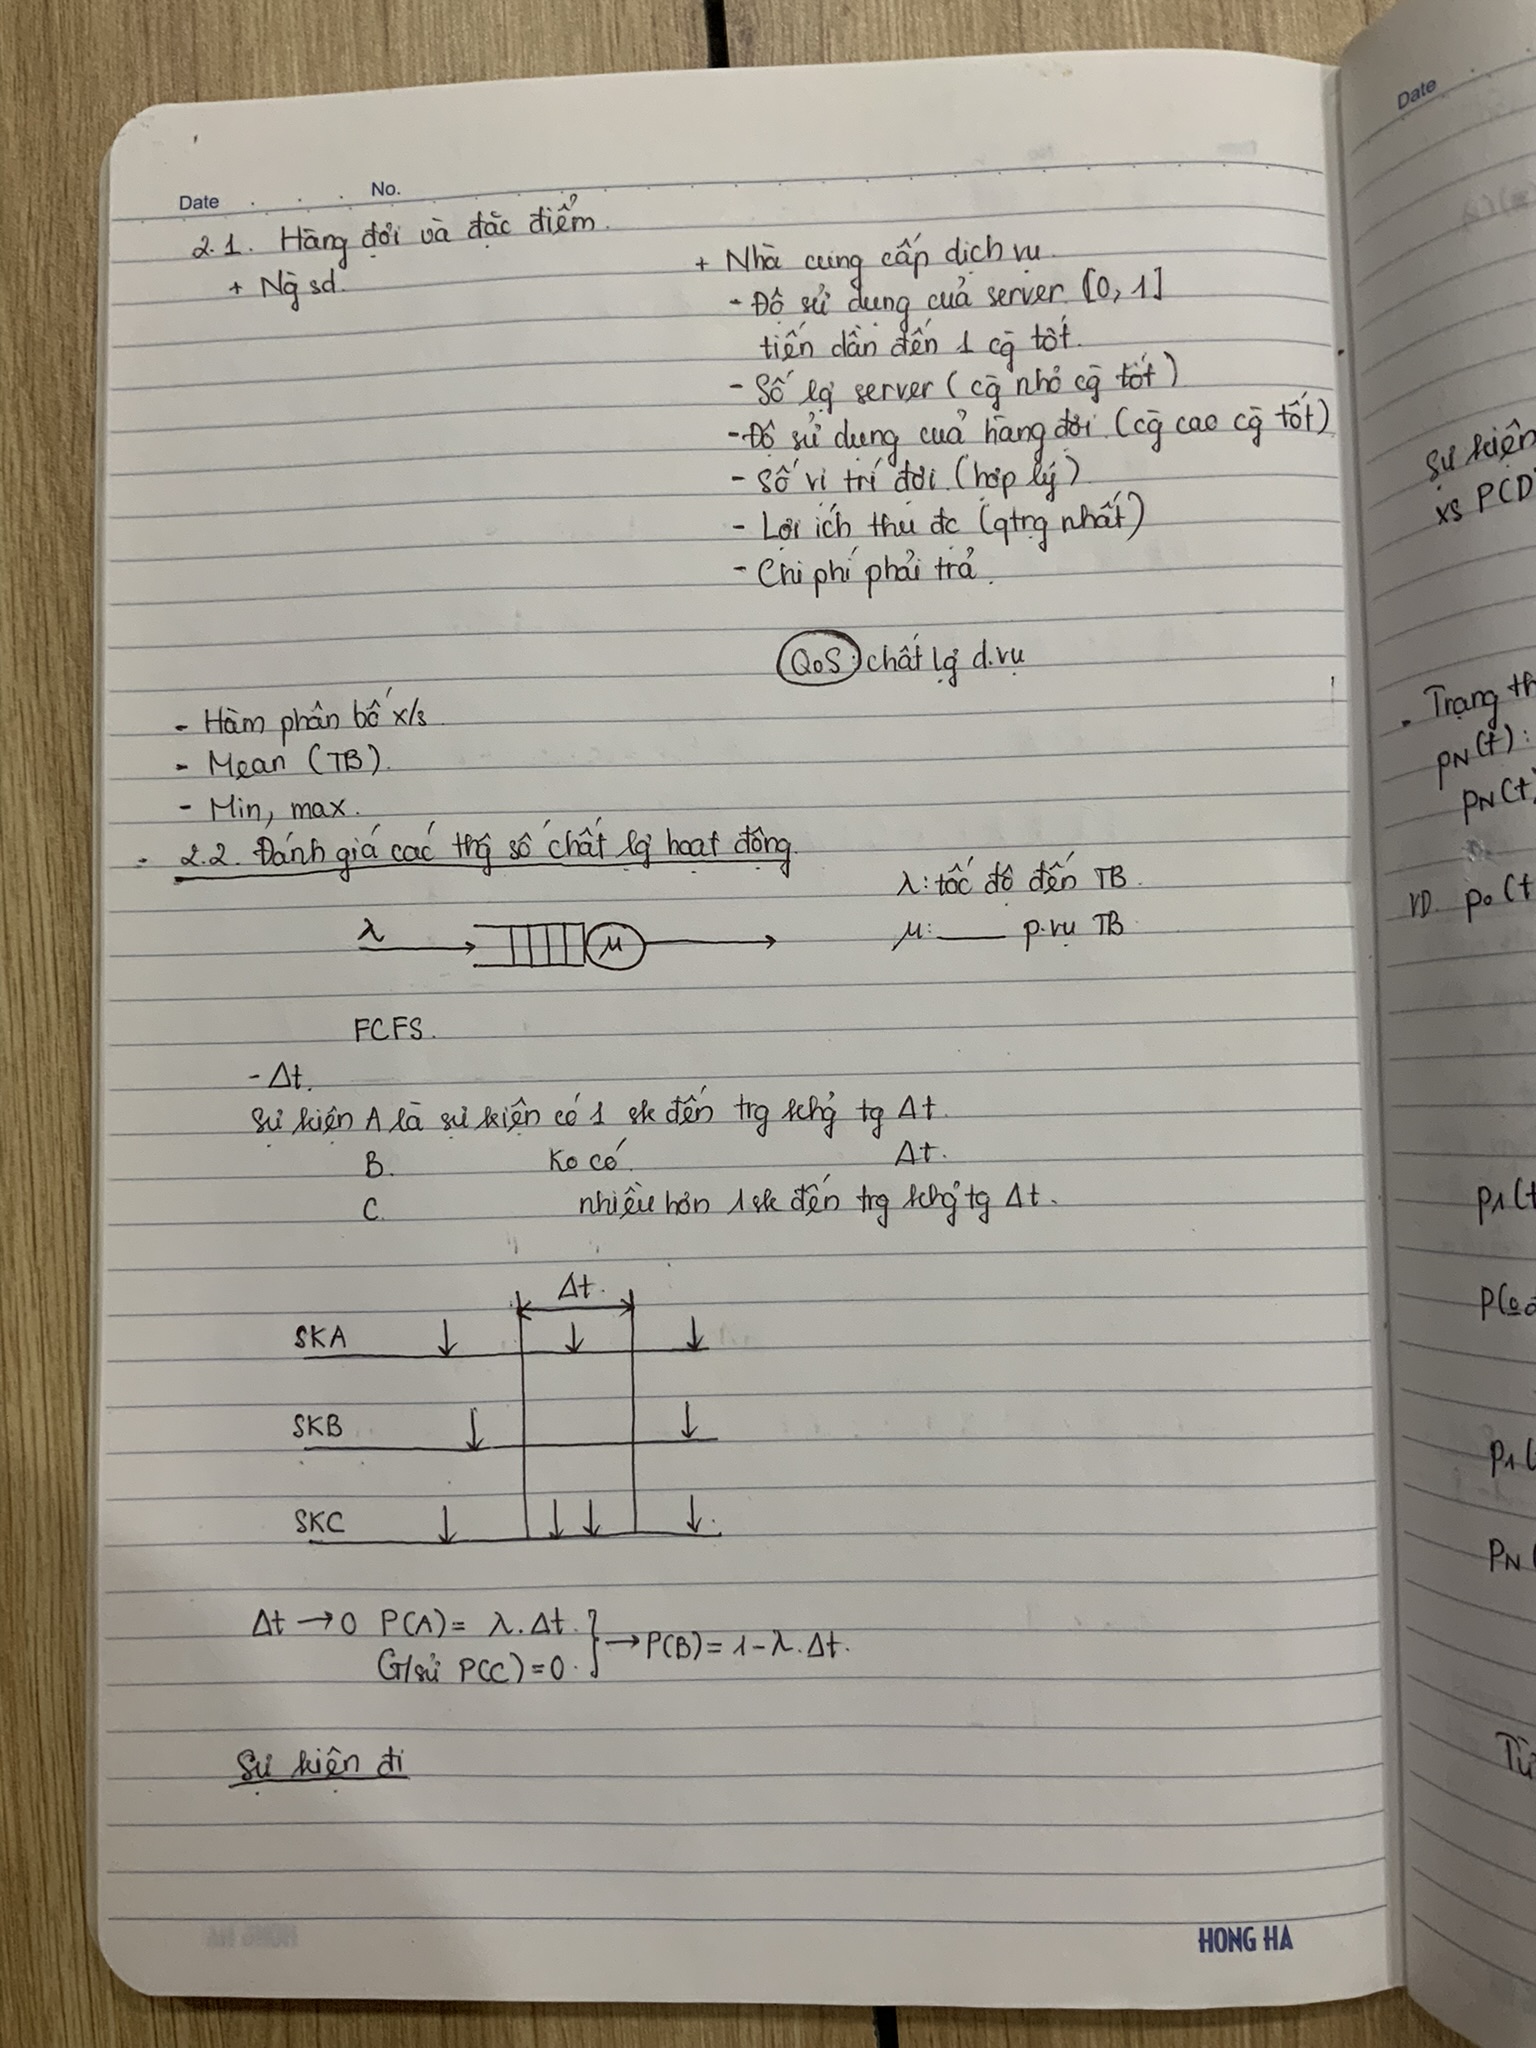 Date No.
2.1. Hàng đợi và đặc điểm.
+ Ng̀ sd.
+ Nhà cung cấp dịch vụ.
- Độ sử dụng của server [0, 1]
tiến dần đến 1 cg̀ tốt.
- Số lg̣ server (cg̀ nhỏ cg̀ tốt)
- Độ sử dụng của hàng đợi. (cg̀ cao cg̀ tốt)
- Số vị trí đợi. (hợp lý)
- Lợi ích thu đc (qtrg nhất)
- Chi phí phải trả.
QoS: chất lg̣ d.vụ
- Hàm phân bố x/s
- Mean (TB).
- Min, max.
- 2.2. Đánh giá các thg số chất lg̣ hoạt động.
λ: tốc độ đến TB.
λ μ
μ: ___ p.vụ TB
FCFS.
- Δt.
Sự kiện A là sự kiện có 1 sk đến trg khg̉ tg Δt.
B. Ko có Δt.
C. nhiều hơn 1 sk đến trg khg̉ tg Δt.
Δt.
SKA
SKB
SKC
Δt → 0 P(A) = λ.Δt. } → P(B) = 1 - λ.Δt.
G/sử P(C) = 0.
Sự kiện đi
HONG HA
Date
Sự kiện
xs P(D
- Trạng th
pN(t):
pN(t
VD. p0(t
p1(t
P(
p1(
pN(
Từ